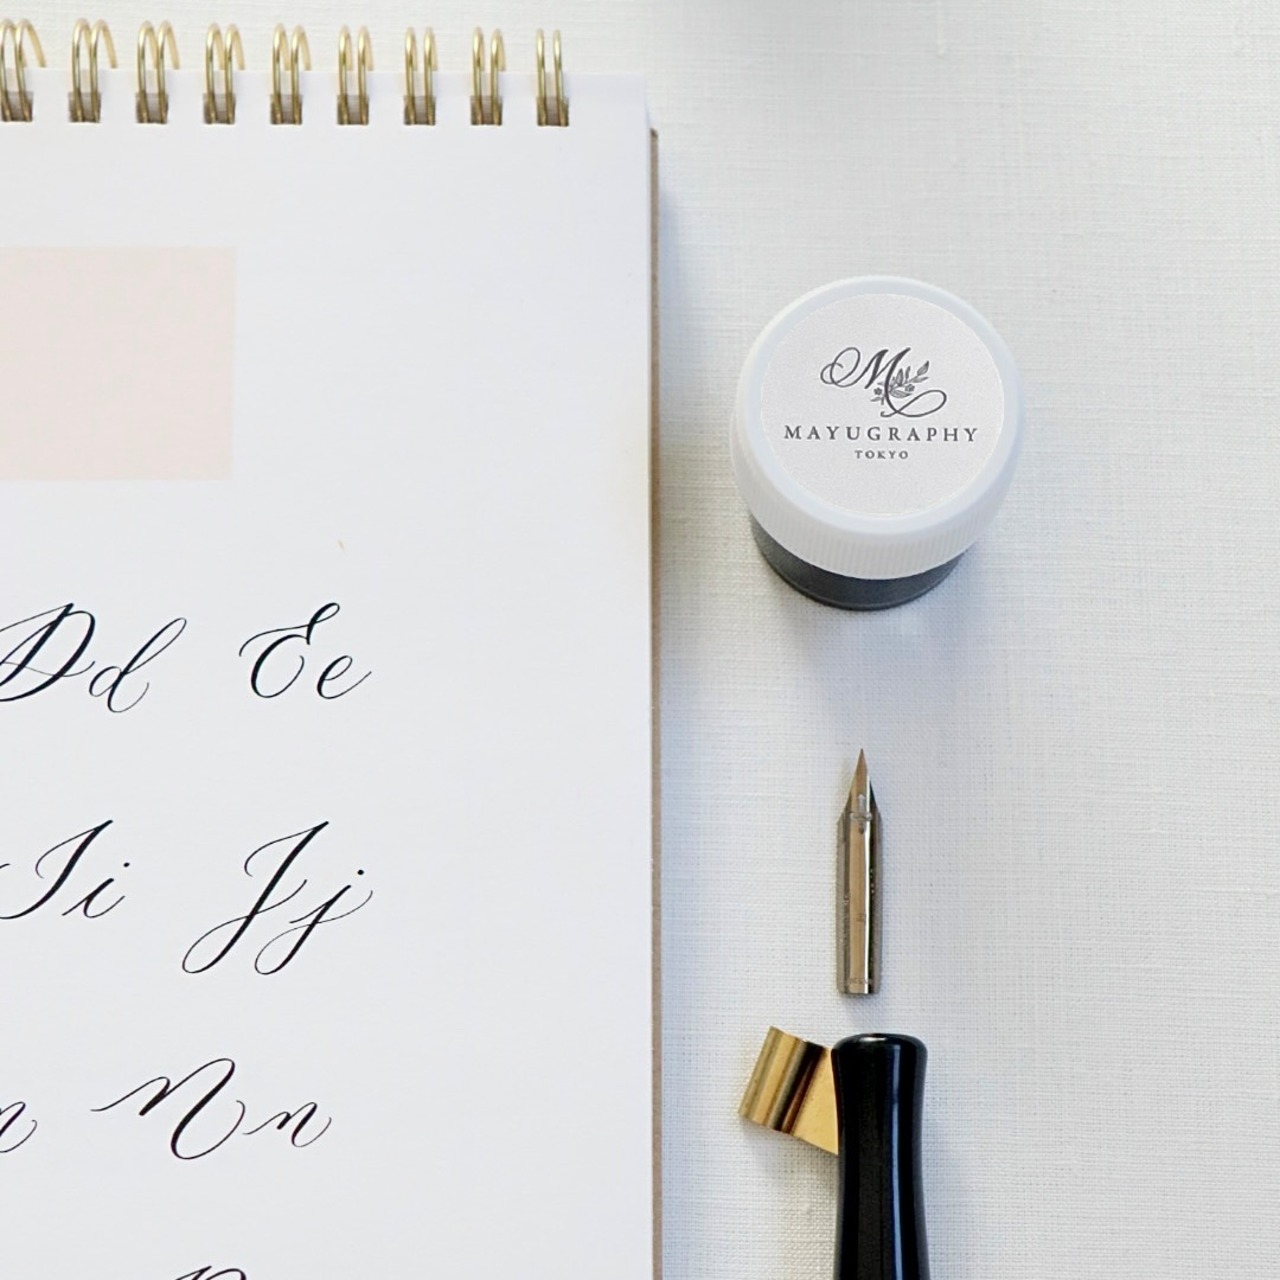 M
MAYUGRAPHY
TOKYO
Dd Ee
Ii Jj
Nn